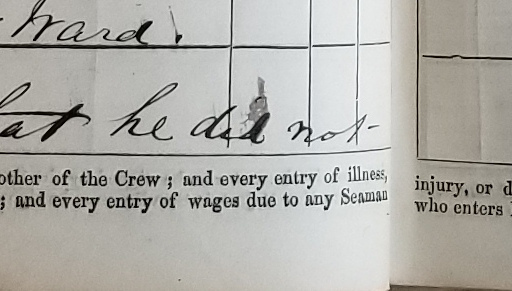 Ward.
hat he did not-
other of the Crew ; and every entry of illness, injury, or d
; and every entry of wages due to any Seaman who enters